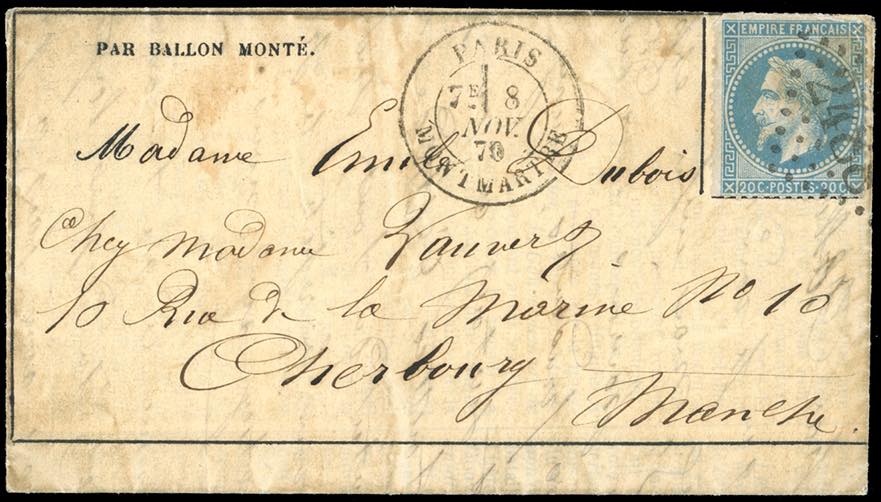 PAR BALLON MONTÉ.
PARIS
7E 8
NOV.
70
MONTMARTRE
EMPIRE FRANÇAIS
20C·POSTES·20C
Madame Emile Dubois
Chez Madame Vauvert
10 Rue de la Marine No 10
Cherbourg
Manche.